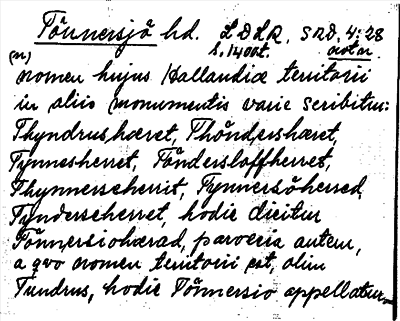 Tönnersjö hd. LDLR, SRD. 4:28
s. 1400t. not n.
(n) nomen hujus Hallandiæ territorii
in aliis monumentis varie scribitur:
Thyndrushæret, Thöndershæret,
Tynnesherret, Töndersloffherret,
Thynnerseherrit, Tynnersöherred,
Tynderseherret, hodie dicitur
Tönnersiohærad, paroecia autem,
a qvo nomen territorii est, olim
Tundrus, hodie Tönnersio appellatur.